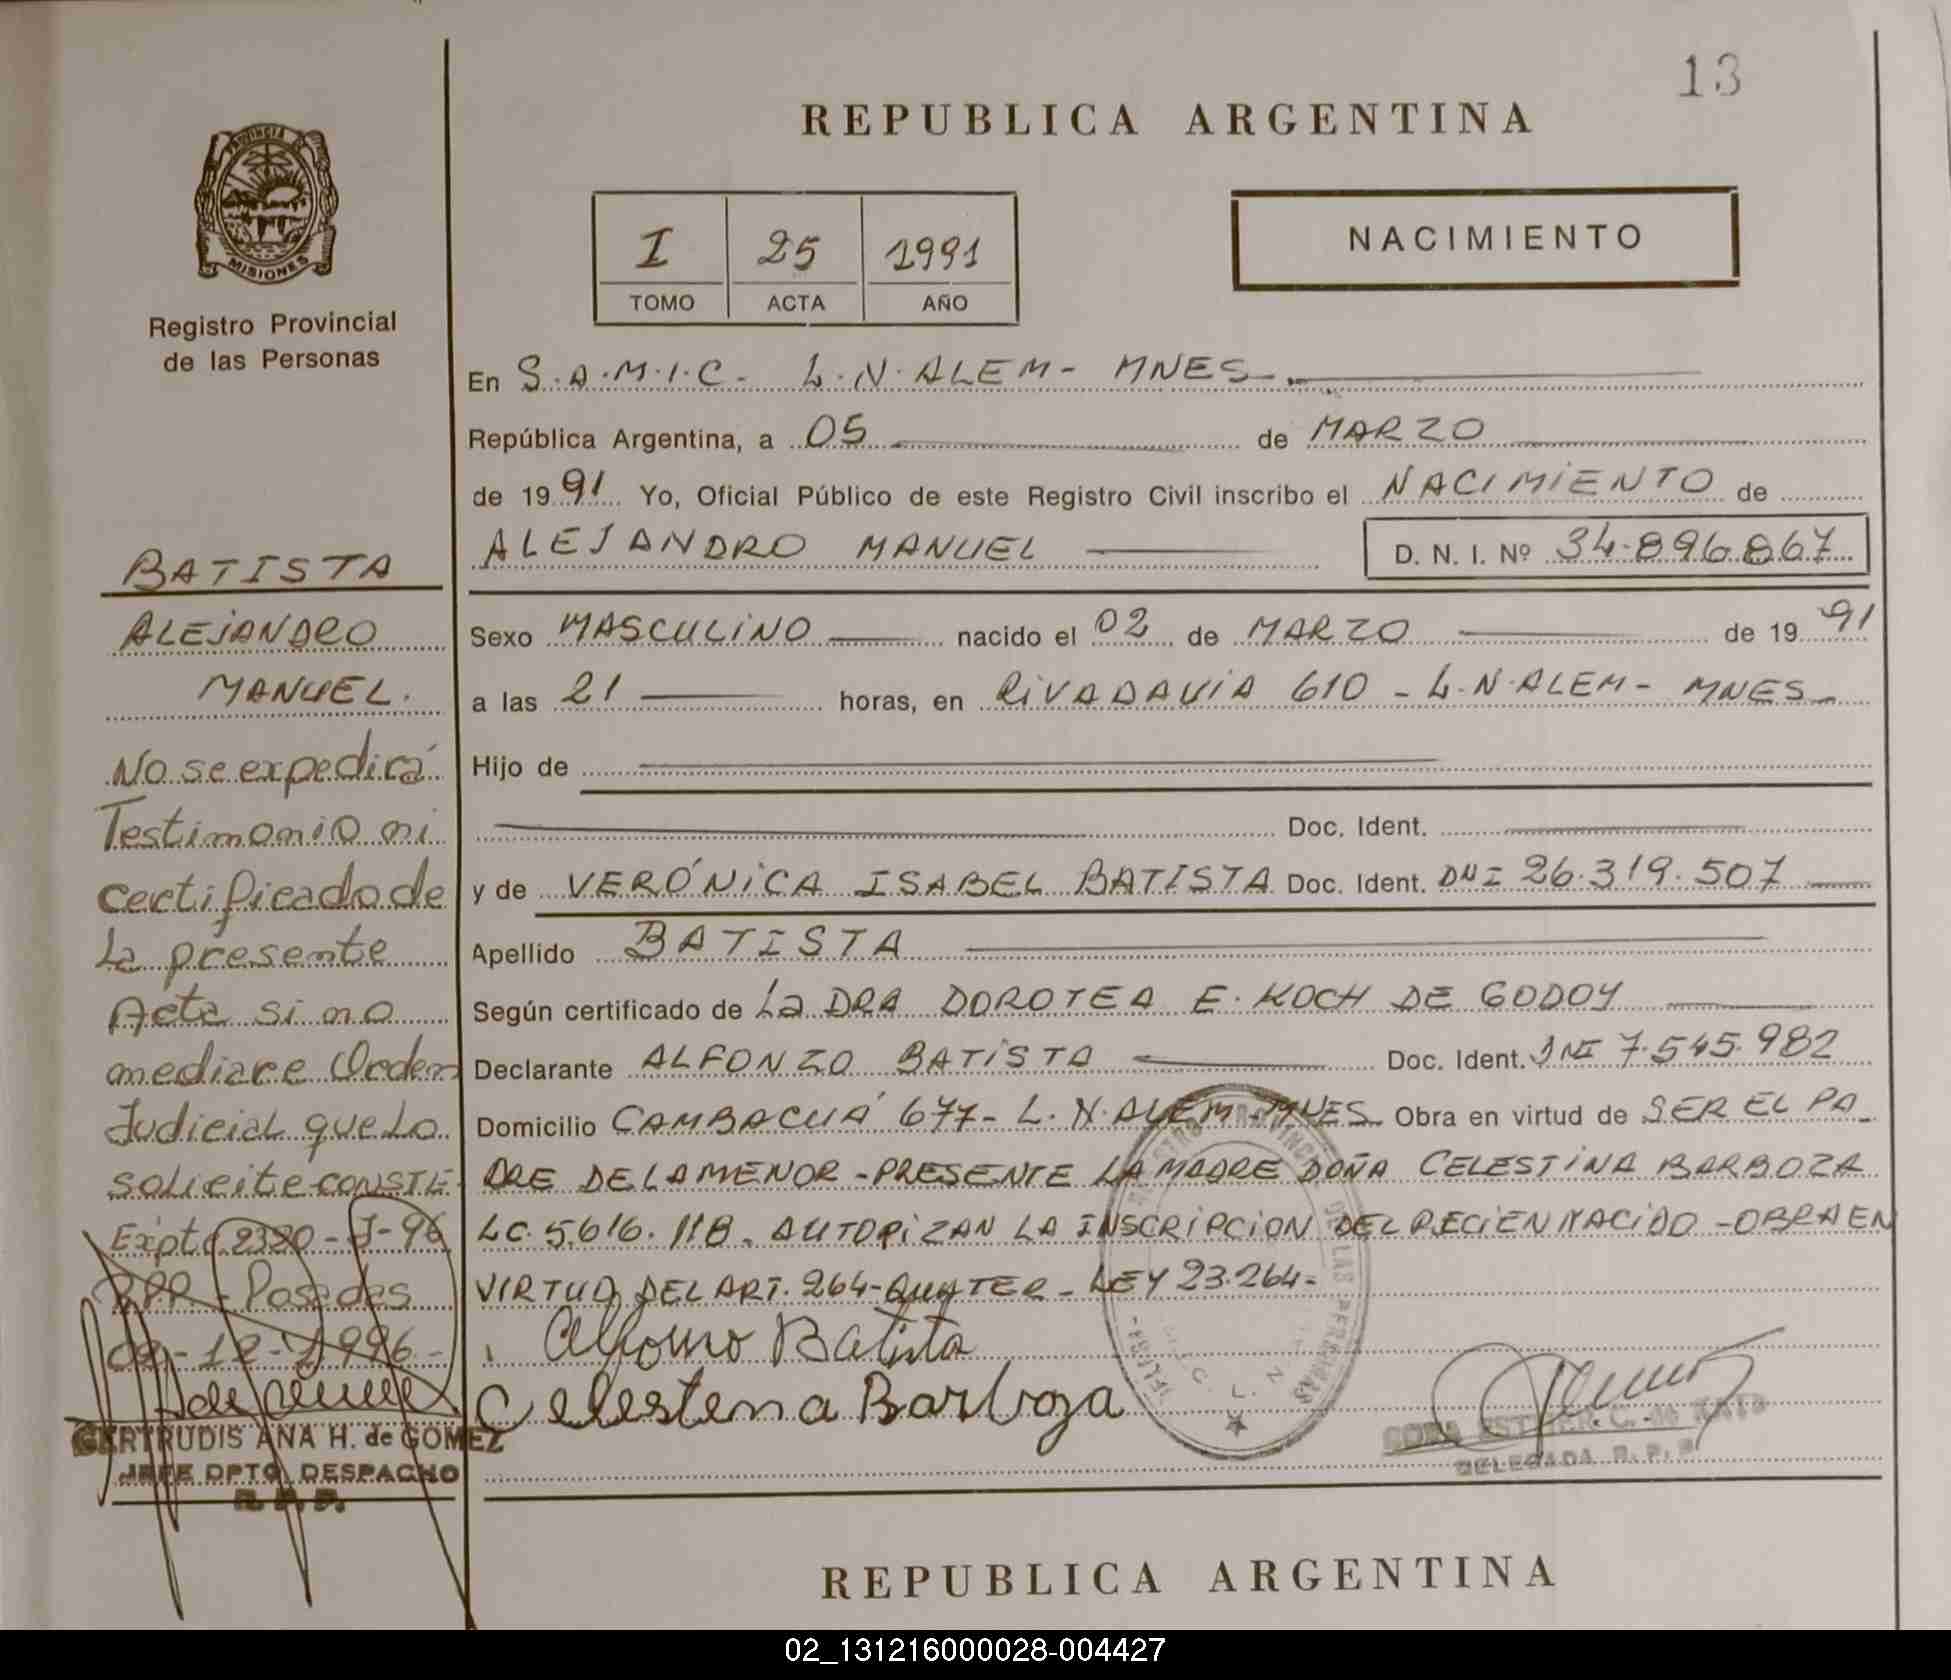 13
REPUBLICA ARGENTINA
PROVINCIA DE
MISIONES
Registro Provincial
de las Personas
I 25 1991
TOMO ACTA AÑO
NACIMIENTO
En S.A.M.I.C. L.N. ALEM - MNES.
República Argentina, a 05 de MARZO
de 1991 Yo, Oficial Público de este Registro Civil inscribo el NACIMIENTO de
ALEJANDRO MANUEL D. N. I. Nº 34.896.867
Sexo MASCULINO nacido el 02 de MARZO de 1991
a las 21 horas, en RIVADAVIA 610 - L.N. ALEM - MNES
Hijo de
Doc. Ident.
y de VERÓNICA ISABEL BATISTA Doc. Ident. DNI 26.319.507
Apellido BATISTA
Según certificado de LA DRA DOROTEA E. KOCH DE GODOY
Declarante ALFONZO BATISTA Doc. Ident. DNI 7.545.982
Domicilio CAMBACUÁ 677 - L.N. ALEM - MNES Obra en virtud de SER EL PA
DRE DE LA MENOR - PRESENTE LA MADRE DOÑA CELESTINA BARBOZA
LC. 5.616.118. AUTORIZAN LA INSCRIPCION DEL RECIEN NACIDO - OBRA EN
VIRTUD DEL ART. 264 - QUATER - LEY 23.264 -
Alfonso Batista
Celestena Barboza
DELEGADA R. P. P.
BATISTA
ALEJANDRO
MANUEL.
No se expedirá
Testimonio ni
certificado de
La presente
Acta si no
mediare Orden
Judicial que Lo
solicite CONSTE
Expte 2320 - J - 96
RPP - Posadas
09 - 12 - 1996 -
GERTRUDIS ANA H. de GOMEZ
JEFE DPTO. DESPACHO
R. P. P.
REPUBLICA ARGENTINA
02_131216000028-004427